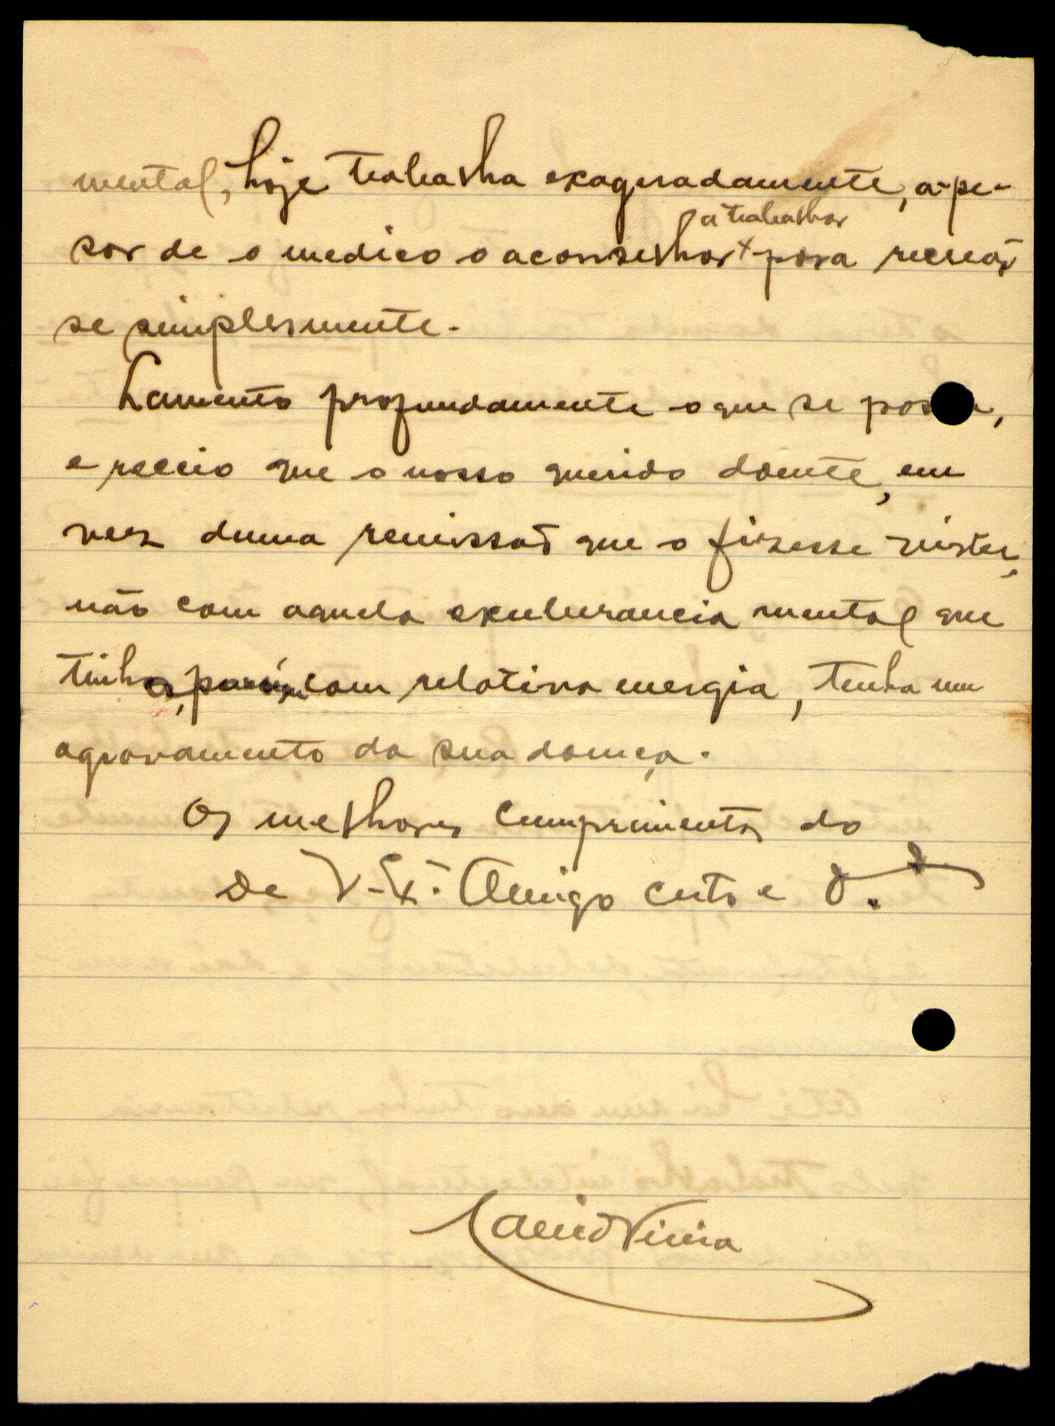 mental, hoje trabalha exageradamente, a-pe-
sar de o medico o aconselhar a trabalhar para recrear
se simplesmente.
Lamento profundamente o que se passa,
e receio que o nosso querido doente, em
vez duma remissão que o fizesse
não com aquela exuberancia mental que
tinha, porém com relativa energia, tenha um
agravamento da sua doença.
Os melhores cumprimentos do
De V. Ex.ª Amigo certo e